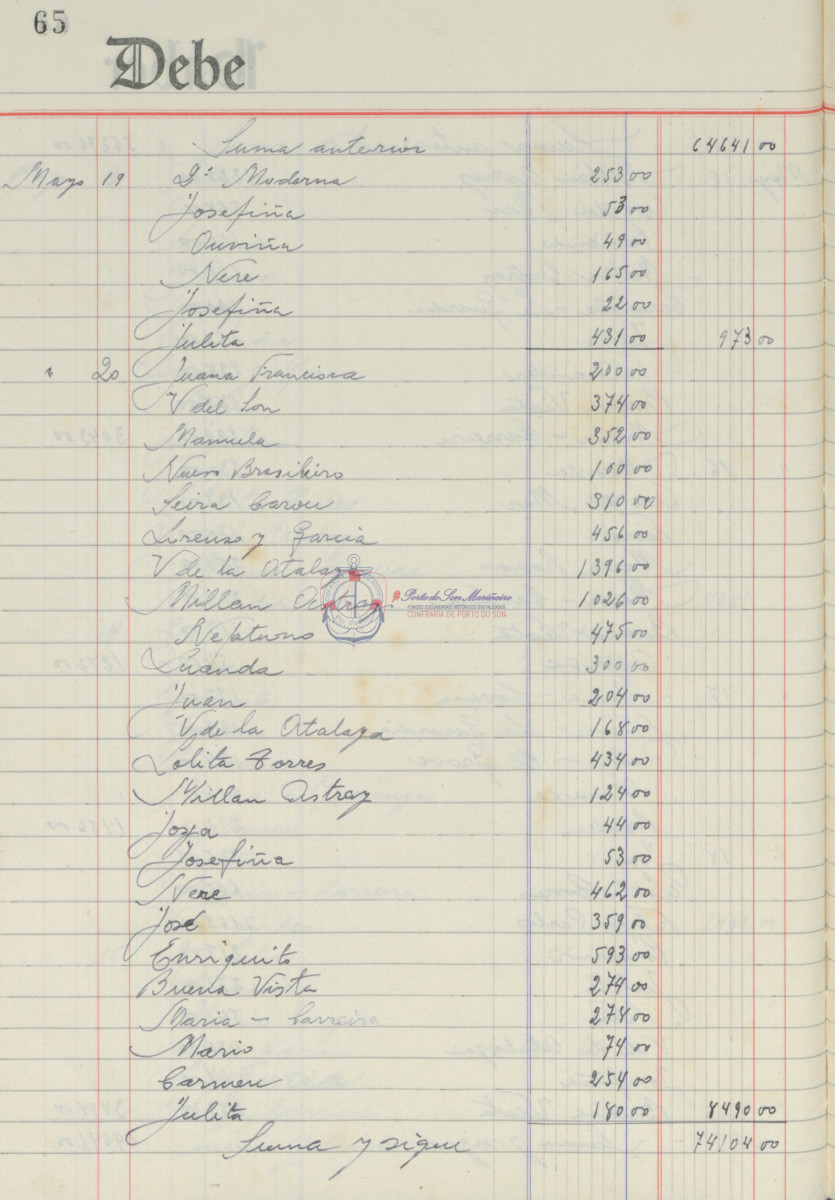 65
Debe
Suma anterior 64641 00
Mayo 19 2ª Moderna 253 00
Josefiña 53 00
Ouviña 49 00
Nere 165 00
Josefiña 22 00
Julita 431 00 973 00
" 20 Juana Francisca 200 00
V del Son 374 00
Manuela 352 00
Nuevo Brasileiro 100 00
Seira Carou 310 00
Lorenzo y Garcia 456 00
V de la Atalaya 1396 00
Millan Astray 1026 00
Porto do Son Mariñeiro
FONDOS DOCUMENTAIS HISTÓRICOS DIXITALIZADOS
CONFRARÍA DE PORTO DO SON
Nebtuno 475 00
Luanda 300 00
Juan 204 00
V de la Atalaya 168 00
Lolita Torres 434 00
Millan Astray 124 00
Josefa 44 00
Josefiña 53 00
Nere 462 00
José 359 00
Enriquito 593 00
Buena Vista 274 00
Maria - Carreira 274 00
Mario 74 00
Carmen 254 00
Julita 180 00 8490 00
Suma y sigue 74104 00